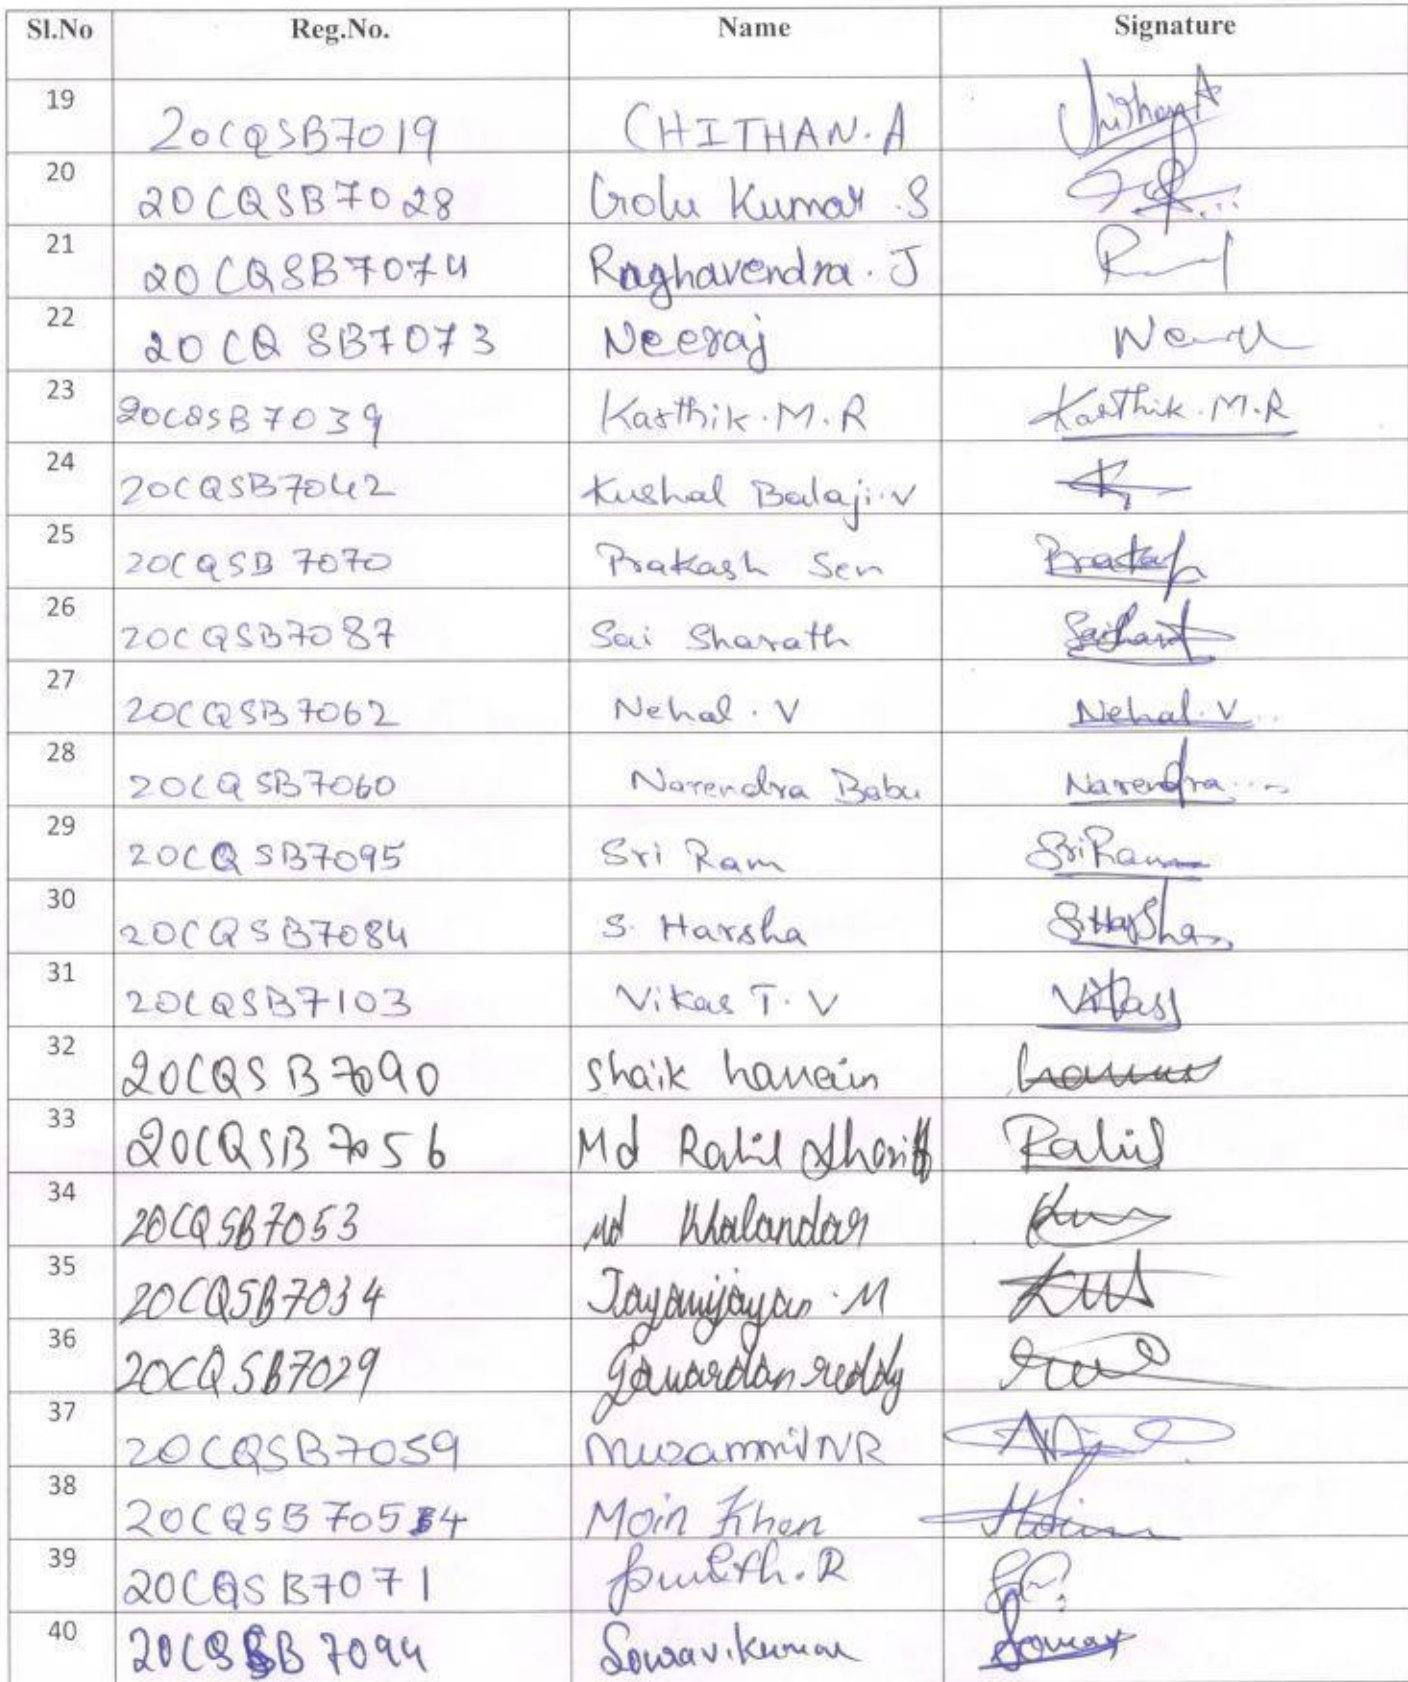 Sl.No Reg.No. Name Signature
19 20CQSB7019 CHITHAN.A ChithanA
20 20CQSB7028 Golu Kumar .S
21 20CQSB7074 Raghavendra. J
22 20CQ SB7073 Neeraj
23 20CQSB7039 Karthik.M.R Karthik.M.R
24 20CQSB7042 Kushal Balaji.V
25 20CQSB 7070 Prakash Sen
26 20CQSB7087 Sai Sharath
27 20CQSB7062 Nehal . V Nehal.V
28 20CQSB7060 Narendra Babu Narendra
29 20CQSB7095 Sri Ram Sri Ram
30 20CQSB7084 S. Harsha S.Harsha
31 20CQSB7103 Vikas T. V Vikass
32 20CQSB7090 Shaik
33 20CQSB7056 Md Rahil Shariff Rahil
34 20CQSB7053 Md Khalandar
35 20CQSB7034 M
36 20CQSB7029 reddy
37 20CQSB7059 Muzammil NR
38 20CQSB7054 Moin Khan Moin
39 20CQSB7071
40 20CQSB7094 Sourav.Kumar Sourav